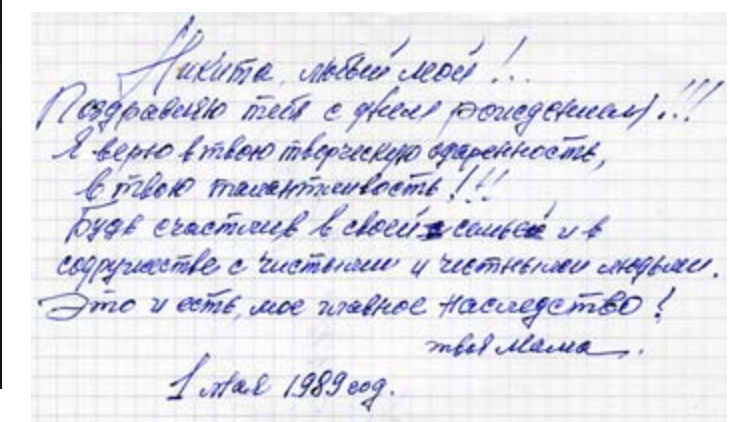 Никита, любый мой!..
Поздравляю тебя с днем рождения!..!!
Я верю в твою творческую одаренность,
в твою талантливость!!!
Будь счастлив в своей семье и в
содружестве с чистыми и честными людьми.
Это и есть, мое главное наследство!
твоя Мама.
1 мая 1989 год.